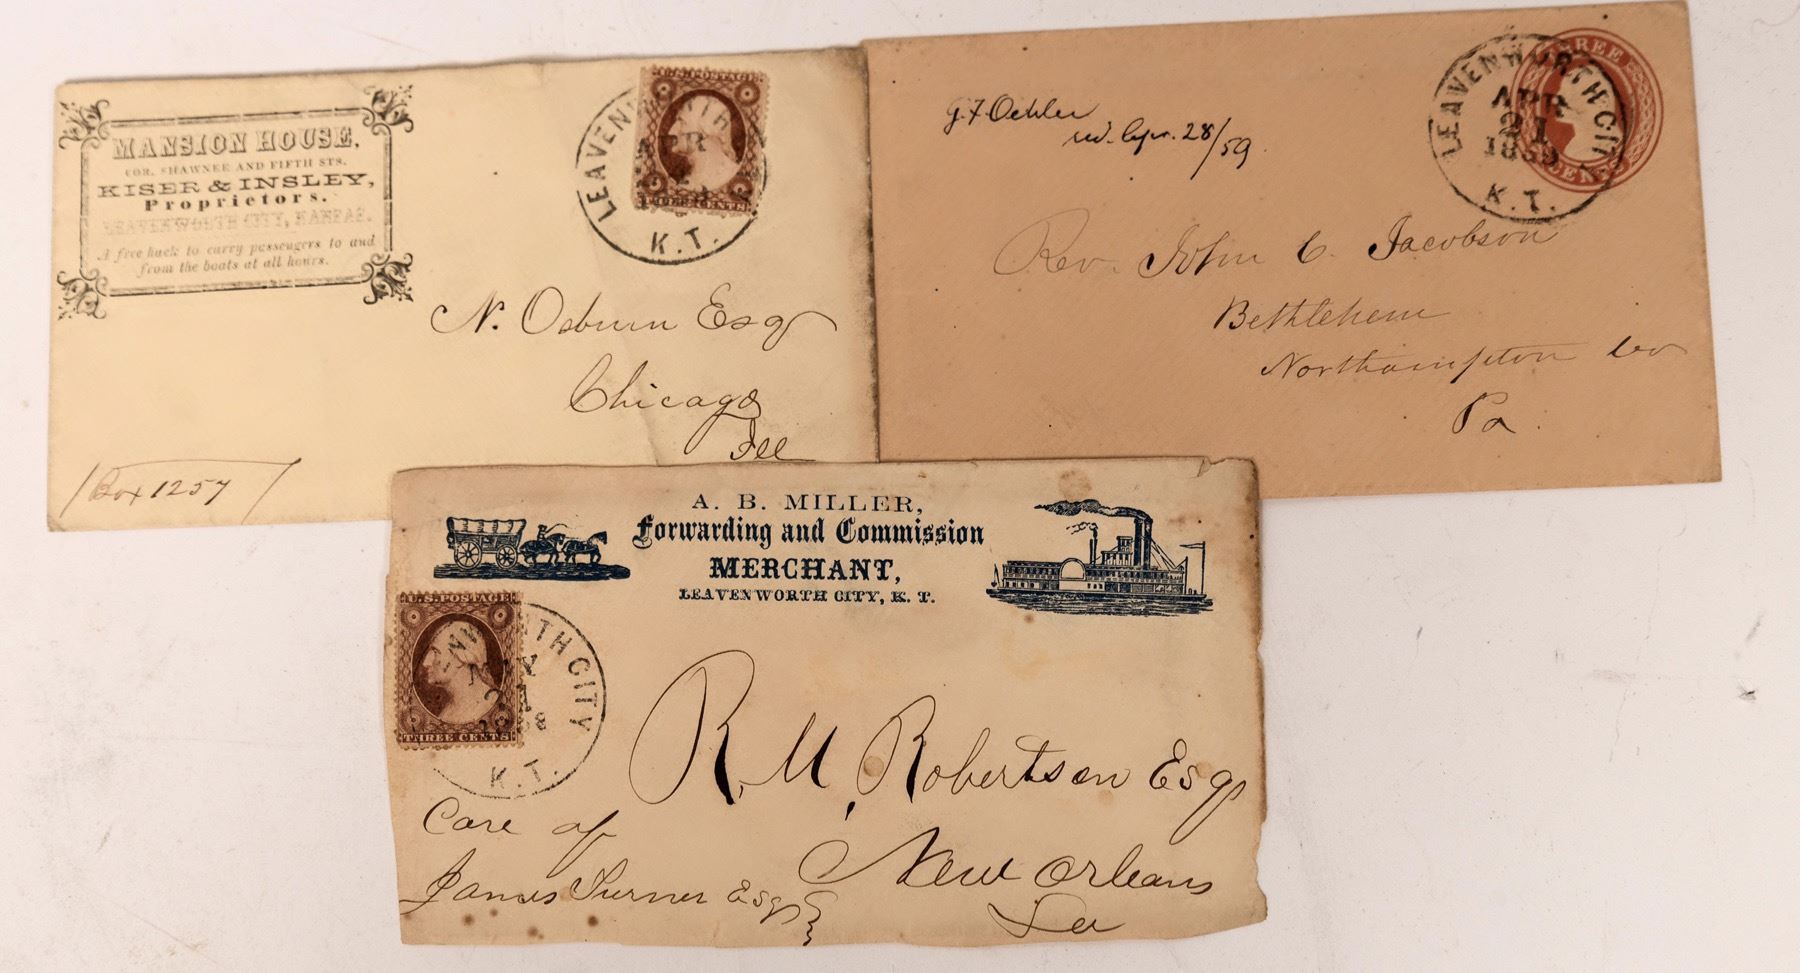 MANSION HOUSE,
COR. SHAWNEE AND FIFTH STS.
KISER & INSLEY,
Proprietors.
LEAVENWORTH CITY, KANSAS.
A free hack to carry passengers to and
from the boats at all hours.
U.S. POSTAGE
THREE CENTS
LEAVENWORTH
APR
K.T.
N. Osburn Esq
Chicago
Ill
Box 1257
G. F. Oehler
Apr. 28/59.
THREE
CENTS
LEAVENWORTH CITY
APR
21
1859
K.T.
Rev. John C. Jacobson
Bethlehem
Northampton Co
Pa.
A. B. MILLER,
Forwarding and Commission
MERCHANT,
LEAVENWORTH CITY, K. T.
U.S. POSTAGE
THREE CENTS
ENWORTH CITY
K.T.
R. M. Robertson Esq
Care of
James Turner Esq
New Orleans
La